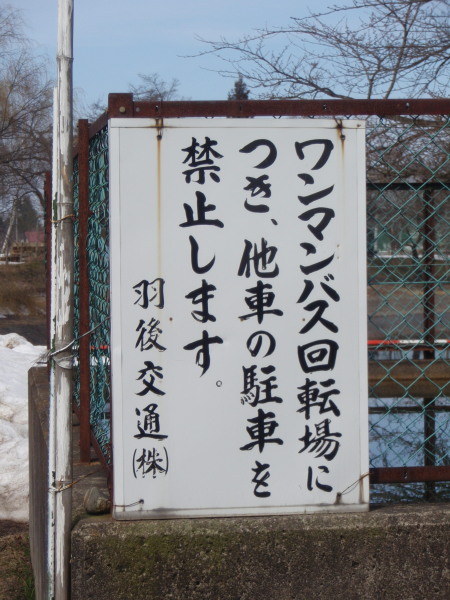 ワンマンバス回転場に
つき、他車の駐車を
禁止します。
羽後交通㈱